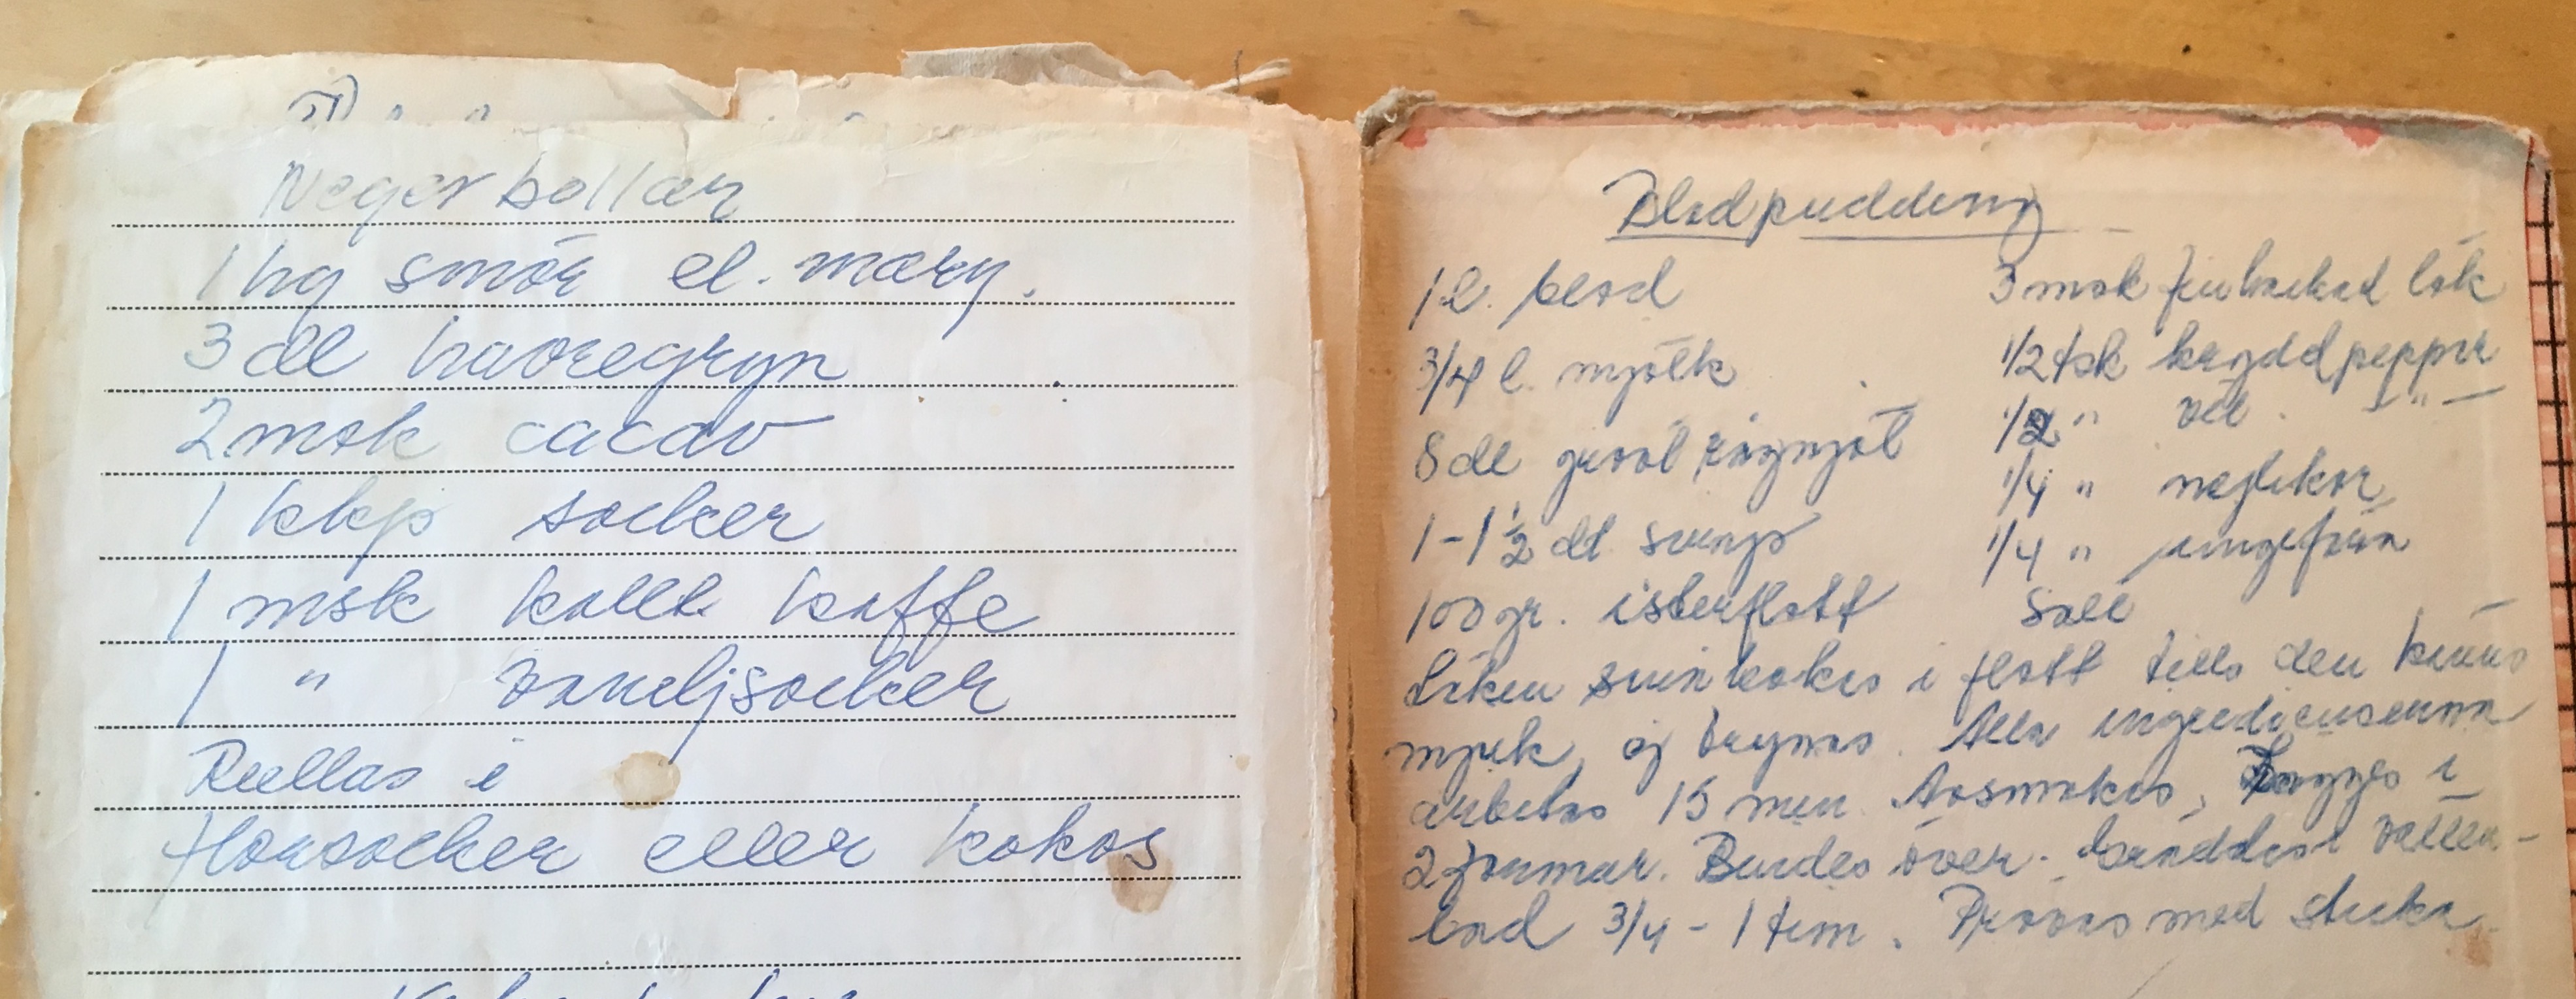 Negerbollar
1 hg smör el. marg.
3 dl havregryn
2 msk cacao
1 kkp socker
1 msk kallt kaffe
1 " vaneljsocker
Rullas i
florsocker eller kokos
Blodpudding
1 l. blod
3/4 l. mjölk
8 dl grovt rågmjöl
1-1 1/2 dl sirap
100 gr. isterflott
3 msk finhackad lök
1/2 tsk kryddpeppar
1/2 " vit - " -
1/4 " nejlikor
1/4 " ingefära
Salt
Löken sönkokes i flott tills den känns
mjuk, oj brynas. Alla ingredienserna
arbetas 15 min. Avsmakes, Lägges i
2 formar. Bindes över. Gräddas i vatten-
bad 3/4 - 1 tim. Provas med sticka.